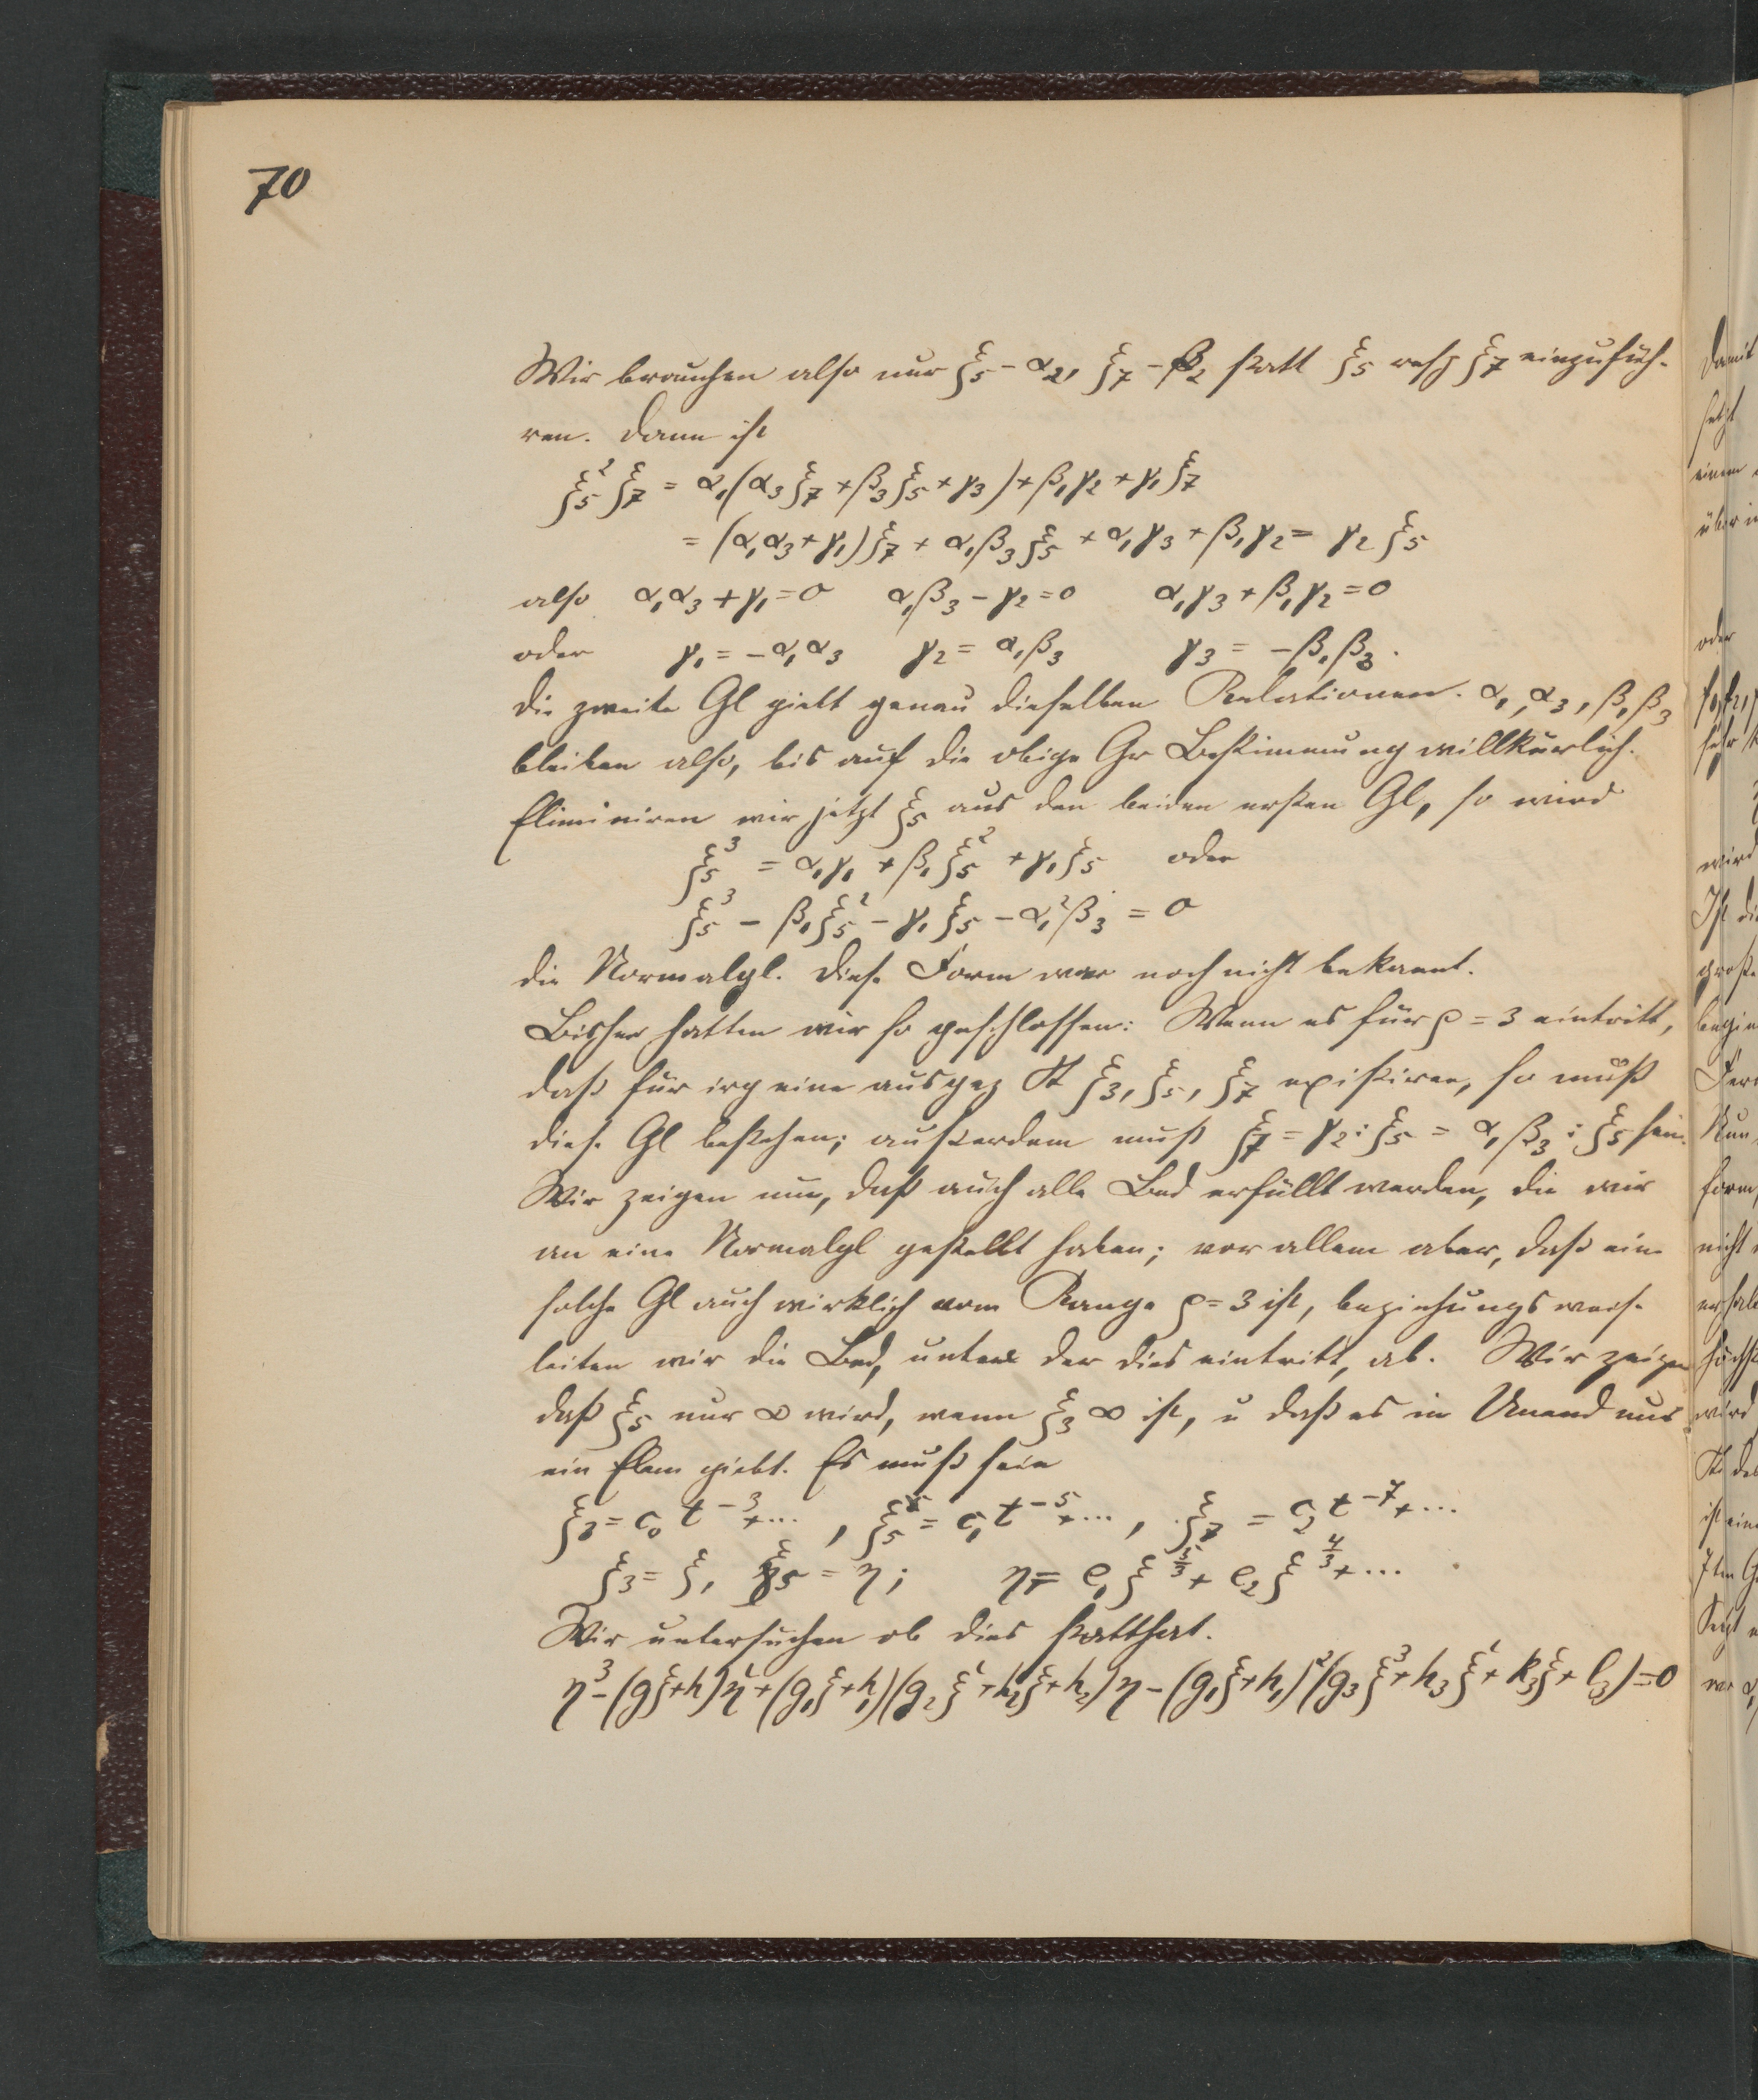 70
Wir brauchen also nur ξ₅ - α₂, ξ₇ - β₂ statt ξ₅ resp ξ₇ einzufüh-
ren. Dann ist
ξ₅²ξ₇ = α₁(α₃ξ₇ + β₃ξ₅ + γ₃) + β₁γ₂ + γ₁ξ₇
= (α₁α₃ + γ₁)ξ₇ + α₁β₃ξ₅ + α₁γ₃ + β₁γ₂ = γ₂ξ₅
also α₁α₃ + γ₁ = 0 α₁β₃ - γ₂ = 0 α₁γ₃ + β₁γ₂ = 0
oder γ₁ = -α₁α₃ γ₂ = α₁β₃ γ₃ = -β₁β₃.
Die zweite Gl giebt genau dieselben Relationen. α₁, α₃, β₁β₃
bleiben also, bis auf die obige Gr Bestimmung willkürlich.
Eliminiren wir jetzt ξ₅ aus den beiden ersten Gl, so wird
ξ₅³ = α₁γ₁ + β₁ξ₅² + γ₁ξ₅ oder
ξ₅³ - β₁ξ₅² - γ₁ξ₅ - α₁²β₃ = 0
die Normalgl. Diese Form war noch nicht bekannt.
Bisher hatten wir so geschlossen: Wenn es für ρ = 3 eintritt,
daß für irg eine ausgez St ξ₃, ξ₅, ξ₇ existiren, so muß
diese Gl bestehen; außerdem muß ξ₇ = γ₂ : ξ₅ = α₁β₃ : ξ₅ sein.
Wir zeigen nun, daß auch alle Bed erfüllt werden, die wir
an eine Normalgl gestellt haben; vor allem aber, daß eine
solche Gl auch wirklich vom Range ρ = 3 ist, beziehungsweise
leiten wir die Bed, unter der dies eintritt, ab. Wir zeigen
daß ξ₅ nur ∞ wird, wenn ξ₃ ∞ ist, u daß es im Unend nur
ein Elem giebt. Es muß sein
ξ₃ = c₀t⁻³ + ..., ξ₅ = c₁t⁻⁵ + ..., ξ₇ = c₂t⁻⁷ + ...
ξ₃ = ξ, ξ₅ = η; η = e₁ξ^(5/3) + e₂ξ^(4/3) + ...
Wir untersuchen ob dies statthat.
η³ - (gξ+h)η² + (g₁ξ+h₁)(g₂ξ²+h₂ξ+k₂)η - (g₁ξ+h₁)²(g₃ξ³+h₃ξ²+k₃ξ+l₃) = 0